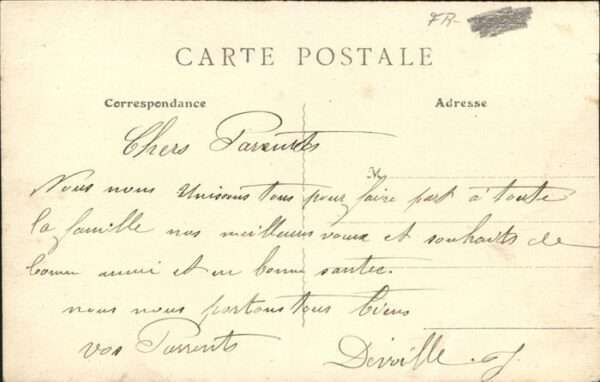 FR-
CARTE POSTALE
Correspondance
Adresse
Chers Parrents
M
Nous nous Unisons tous pour faire part à toute
la famille nos meilleurs vœux et souhaits de
bonne anné et en bonne santée.
nous nous portons tous biens
vos Parrents Déville. J